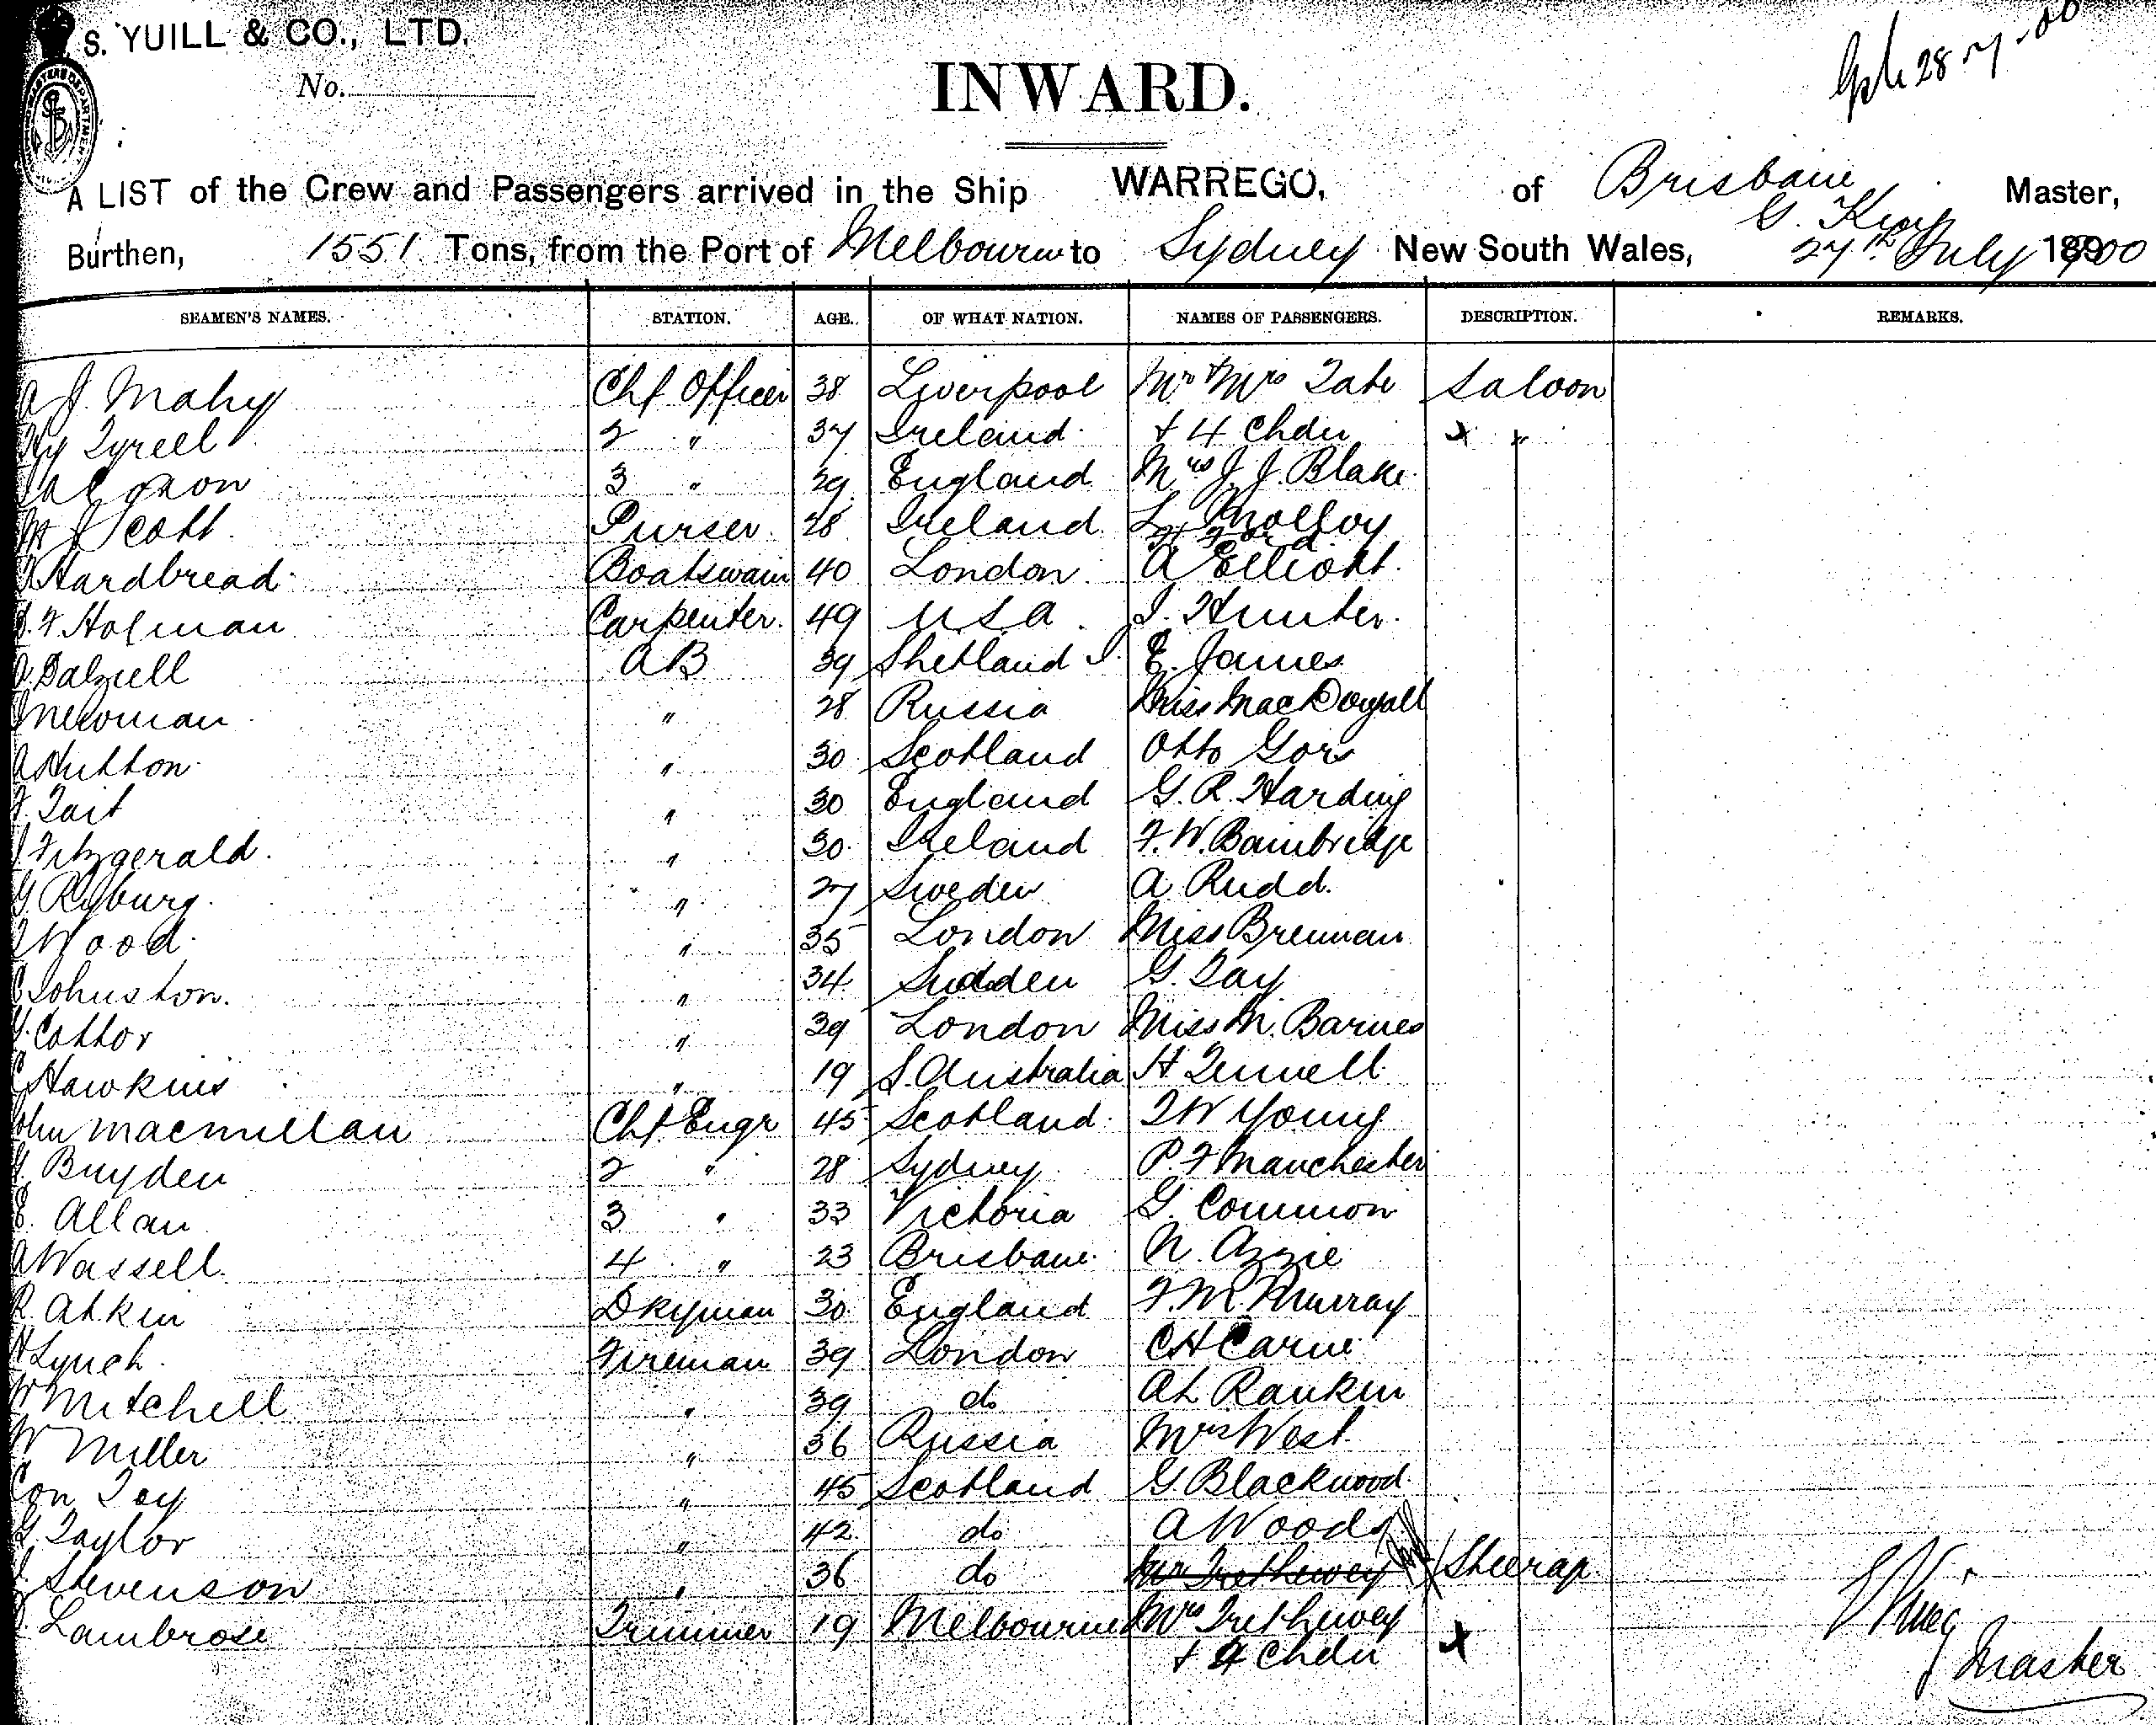 S. YUILL & CO., LTD.
No.
28-7-00
INWARD.
A LIST of the Crew and Passengers arrived in the Ship WARREGO, of Brisbane Master,
G. King
Burthen, 1551 Tons, from the Port of Melbourne to Sydney New South Wales, 27th July 1900
SEAMEN'S NAMES. STATION. AGE. OF WHAT NATION. NAMES OF PASSENGERS. DESCRIPTION. REMARKS.
A J. Mahy Chf Officer 38 Liverpool Mr & Mrs Tate Saloon
Hy Tyrell 2 " 37 Ireland + 4 Chdn x "
3 " 29 England Mrs J. J. Blake
W J Scott Purser 28 Ireland L. Molloy
H Ford
T Hardbread Boatswain 40 London A Elliott
J. F Holman Carpenter 49 U.S.A. J. Hunter
A. Dalziell AB 39 Shetland I. E. James
J Newman " 28 Russia Miss MacDougall
A Hutton " 30 Scotland Otto Gors
F. Tait " 30 England G. R. Harding
J. Fitzgerald " 30 Ireland F. W. Bambridge
G. Ryburg " 27 Sweden A Rudd
J Wood " 35 London Miss Brennan
C Johnston " 34 Sweden G. Tay
Y. Cottor " 39 London Miss M. Barnes
C Hawkins " 19 S. Australia H Tewell
John Macmillan Chf Engr 45 Scotland T W Young
G. Bryden 2 " 28 Sydney P. F Manchester
E. Allan 3 " 33 Victoria G. Common
A Wassell 4 " 23 Brisbane N. Azzie
R. Atkin Dkyman 30 England F. M. Murray
H Lynch Fireman 39 London C H Carne
W Mitchell " 39 do A L Rankin
W Miller " 36 Russia Mrs West
Con Toy " 45 Scotland G. Blackwood
G. Taylor " 42 do A Woods
J. Stevenson " 36 do Mr Trethewey Steerage
Lambrose Trimmer 19 Melbourne Mrs Trethewey
+ 4 Chdn x
G King
Master